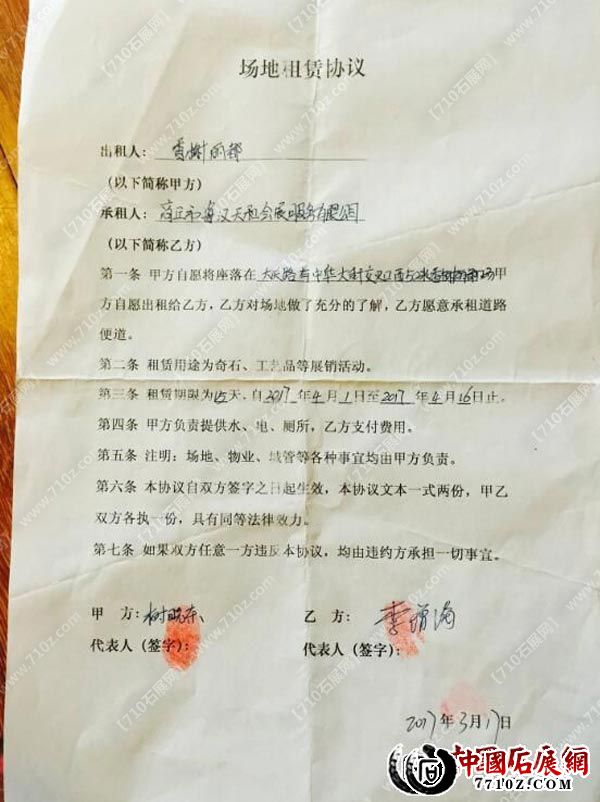 场地租赁协议
出租人：香榭丽都
（以下简称甲方）
承租人：会展服务有限公司
（以下简称乙方）
第一条 甲方自愿将座落在 中华大街交叉口西 甲
方自愿出租给乙方，乙方对场地做了充分的了解，乙方愿意承租道路
便道。
第二条 租赁用途为奇石、工艺品等展销活动。
第三条 租赁期限为15天，自2017年4月1日至2017年4月16日止。
第四条 甲方负责提供水、电、厕所，乙方支付费用。
第五条 注明：场地、物业、城管等各种事宜均由甲方负责。
第六条 本协议自双方签字之日起生效，本协议文本一式两份，甲乙
双方各执一份，具有同等法律效力。
第七条 如果双方任意一方违反本协议，均由违约方承担一切事宜。
甲 方：
代表人（签字）：
乙 方：李
代表人（签字）：
2017年3月17日
中國石展網
7710Z.com
【710石展网】
www.710z.com